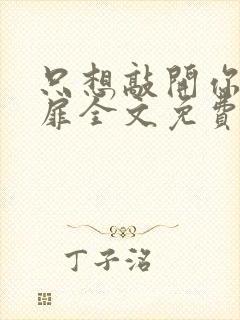 只想敲開你
扉全文免費
丁子洺